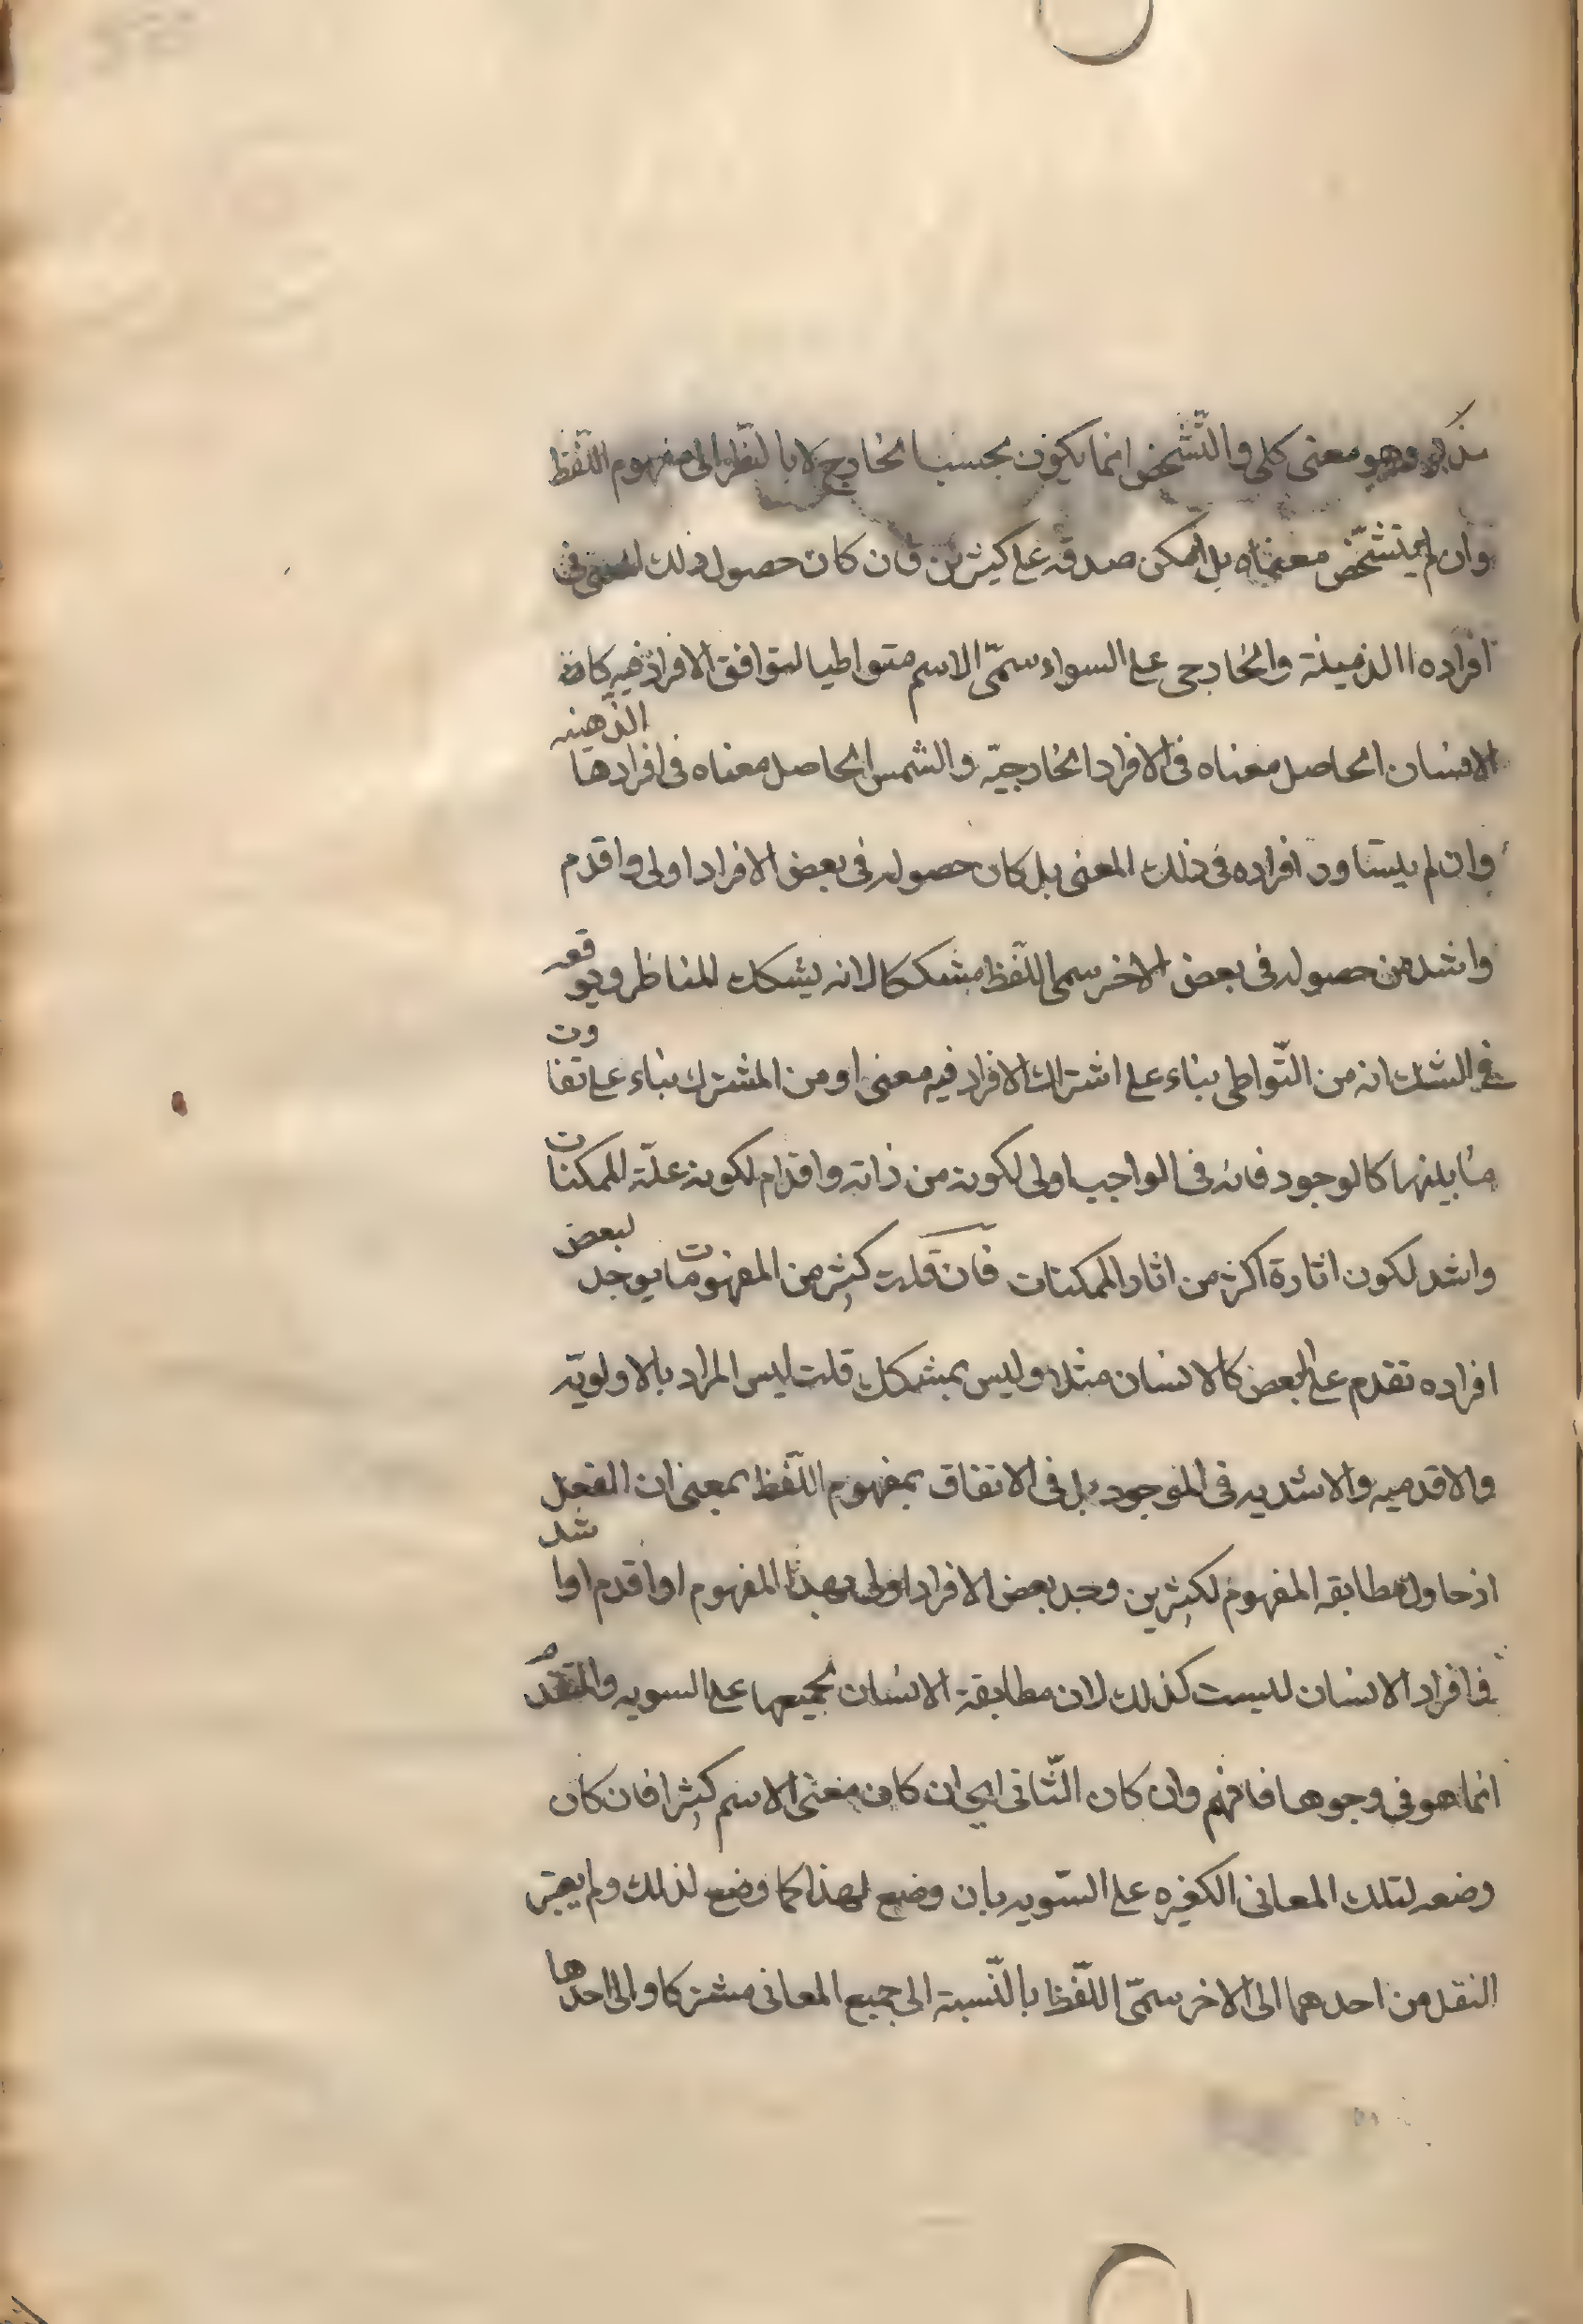 مذكر وهو معنى كلى والتّشخّص انما يكون بحسب الخارج لا بالنّظر الى مفهوم اللّفظ
وان لم يتشخّص معناه بل امكن صدقه على كثيرين فان كان حصول ذلك المعنى فى
افراده الذهينة والخارجى على السواء سمّى الاسم متواطيا لتوافق الافراد فيه كان
الانسان الحاصل معناه فى الافراد الخارجيّه والشمس الحاصل معناه فى افرادها الذّهنيه
وان لم يتساود افراده فى ذلك المعنى بل كان حصوله فى بعض الافراد اولى واقدم
واشد من حصوله فى بعض الاخر سمى اللّفظ مشككا لانه يشكك للناظر ويوقعه
فى الشك انه من التّواطى بناء على اشتراك الافراد فيه معنى او من المشترك بناء على تفاوت
ما بينها كالوجود فانه فى الواجب اولى لكونه من ذاته واقدام لكونه علّة للممكنات
واشد لكون اثارة اكثر من اثار الممكنات فان قلت كثير من المفهومات يوجد لبعض
افراده تقدم على البعض كالانسان مثلا وليس بمشكك قلت ليس المراد بالاولويّه
والاقدميه والاشديه فى الموجود بل فى الاتفاق بمفهوم اللّفظ بمعنى ان العقل
اذ حاول مطابقه المفهوم لكثيرين وجد بعض الافراد اولى بهذا المفهوم او اقدم او اشد
فافراد الانسان لليست كذلك لان مطابقة الانسان لجميعها على السويه والتقدّم
انما هو فى وجوها فافهم وان كان الثّانى اى ان كان معنى الاسم كثيرا فان كان
وضعه لتلك المعانى الكثيره على السّويه بان وضع لهذا كما وضع لذلك ولم يعتبر
النقل من احدهما الى الاخر سمّى اللّفظ بالنّسبة الى جميع المعانى مشتركا والى احدها